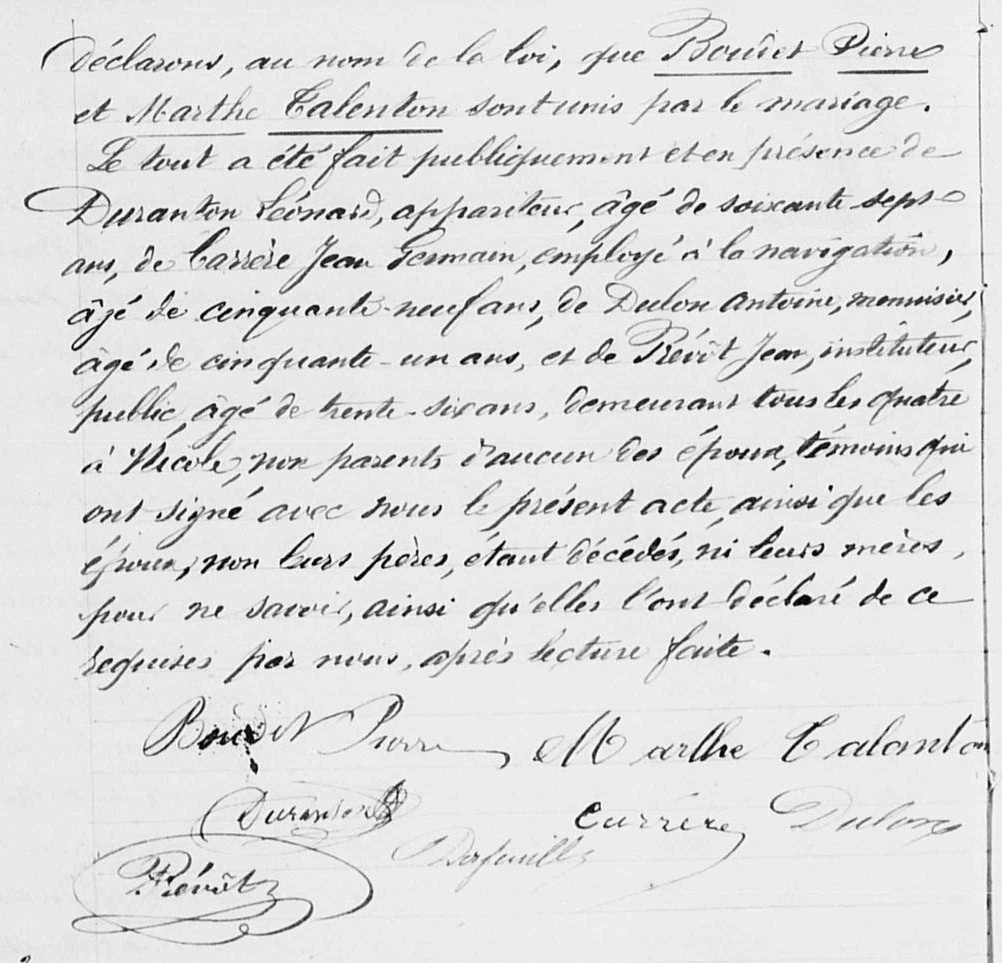 déclarons, au nom de la loi, que Boudet Pierre
et Marthe Talenton sont unis par le mariage.
Le tout a été fait publiquement et en présence de
Duranton Léonard, appariteur, âgé de soixante-sept
ans, de Carrère Jean Germain, employé à la navigation,
âgé de cinquante-neuf ans, de Dulon Antoine, menuisier,
âgé de cinquante-un ans, et de Prévôt Jean, instituteur
public, âgé de trente-six ans, demeurant tous les quatre
à Nicole, non parents d'aucun des époux, témoins qui
ont signé avec nous le présent acte, ainsi que les
époux, non leurs pères, étant décédés, ni leurs mères,
pour ne savoir, ainsi qu'elles l'ont déclaré de ce
requises par nous, après lecture faite.
Boudet Pierre Marthe Talanton
Duranton Carrère Dulon
Prévôt